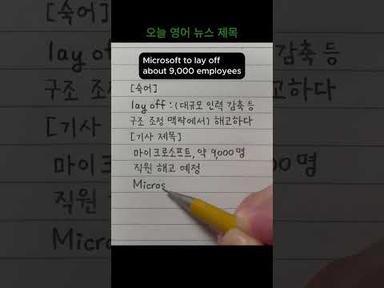 오늘 영어 뉴스 제목
Microsoft to lay off
about 9,000 employees
[숙어]
lay off : (대규모 인력 감축 등
구조 조정 맥락에서) 해고하다
[기사 제목]
마이크로소프트, 약 9,000명
직원 해고 예정
Micros